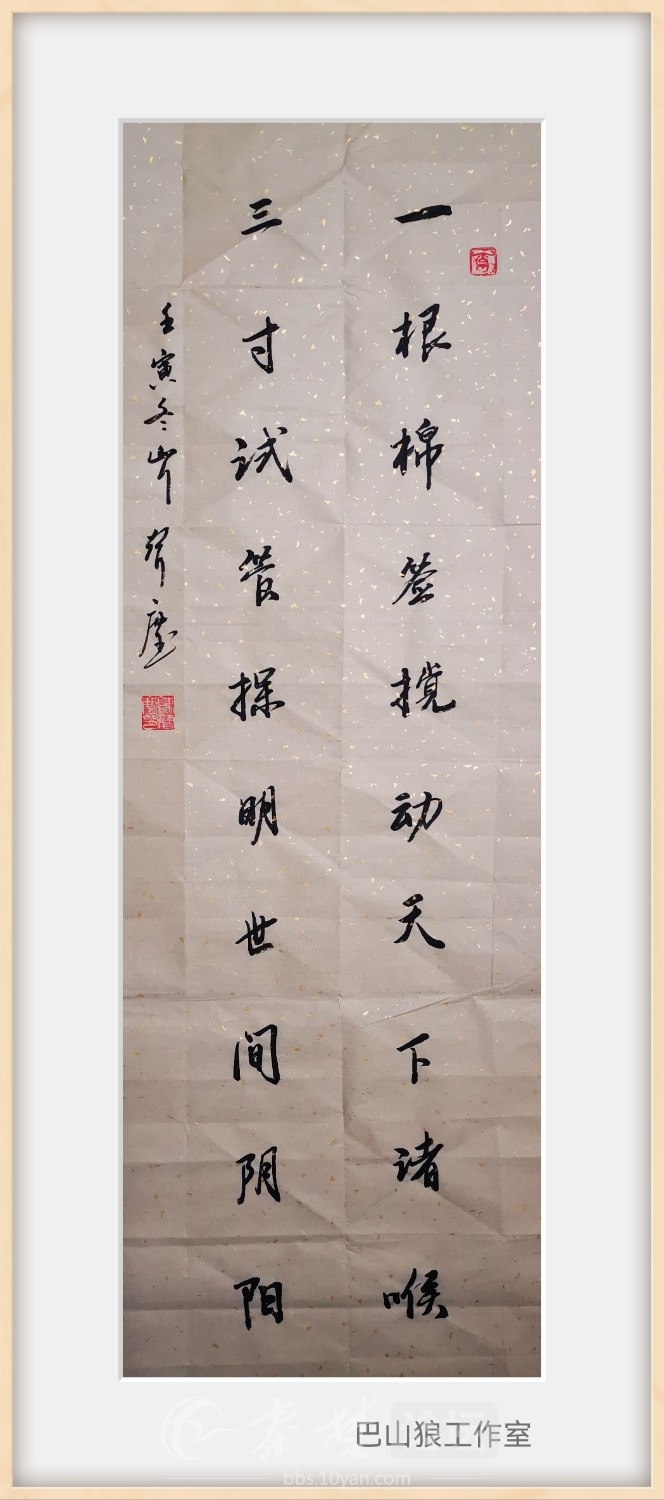 一根棉签搅动天下诸喉
三寸试管探明世间阴阳
壬寅冬岢声尘
巴山狼工作室
秦楚
bbs.10yan.com